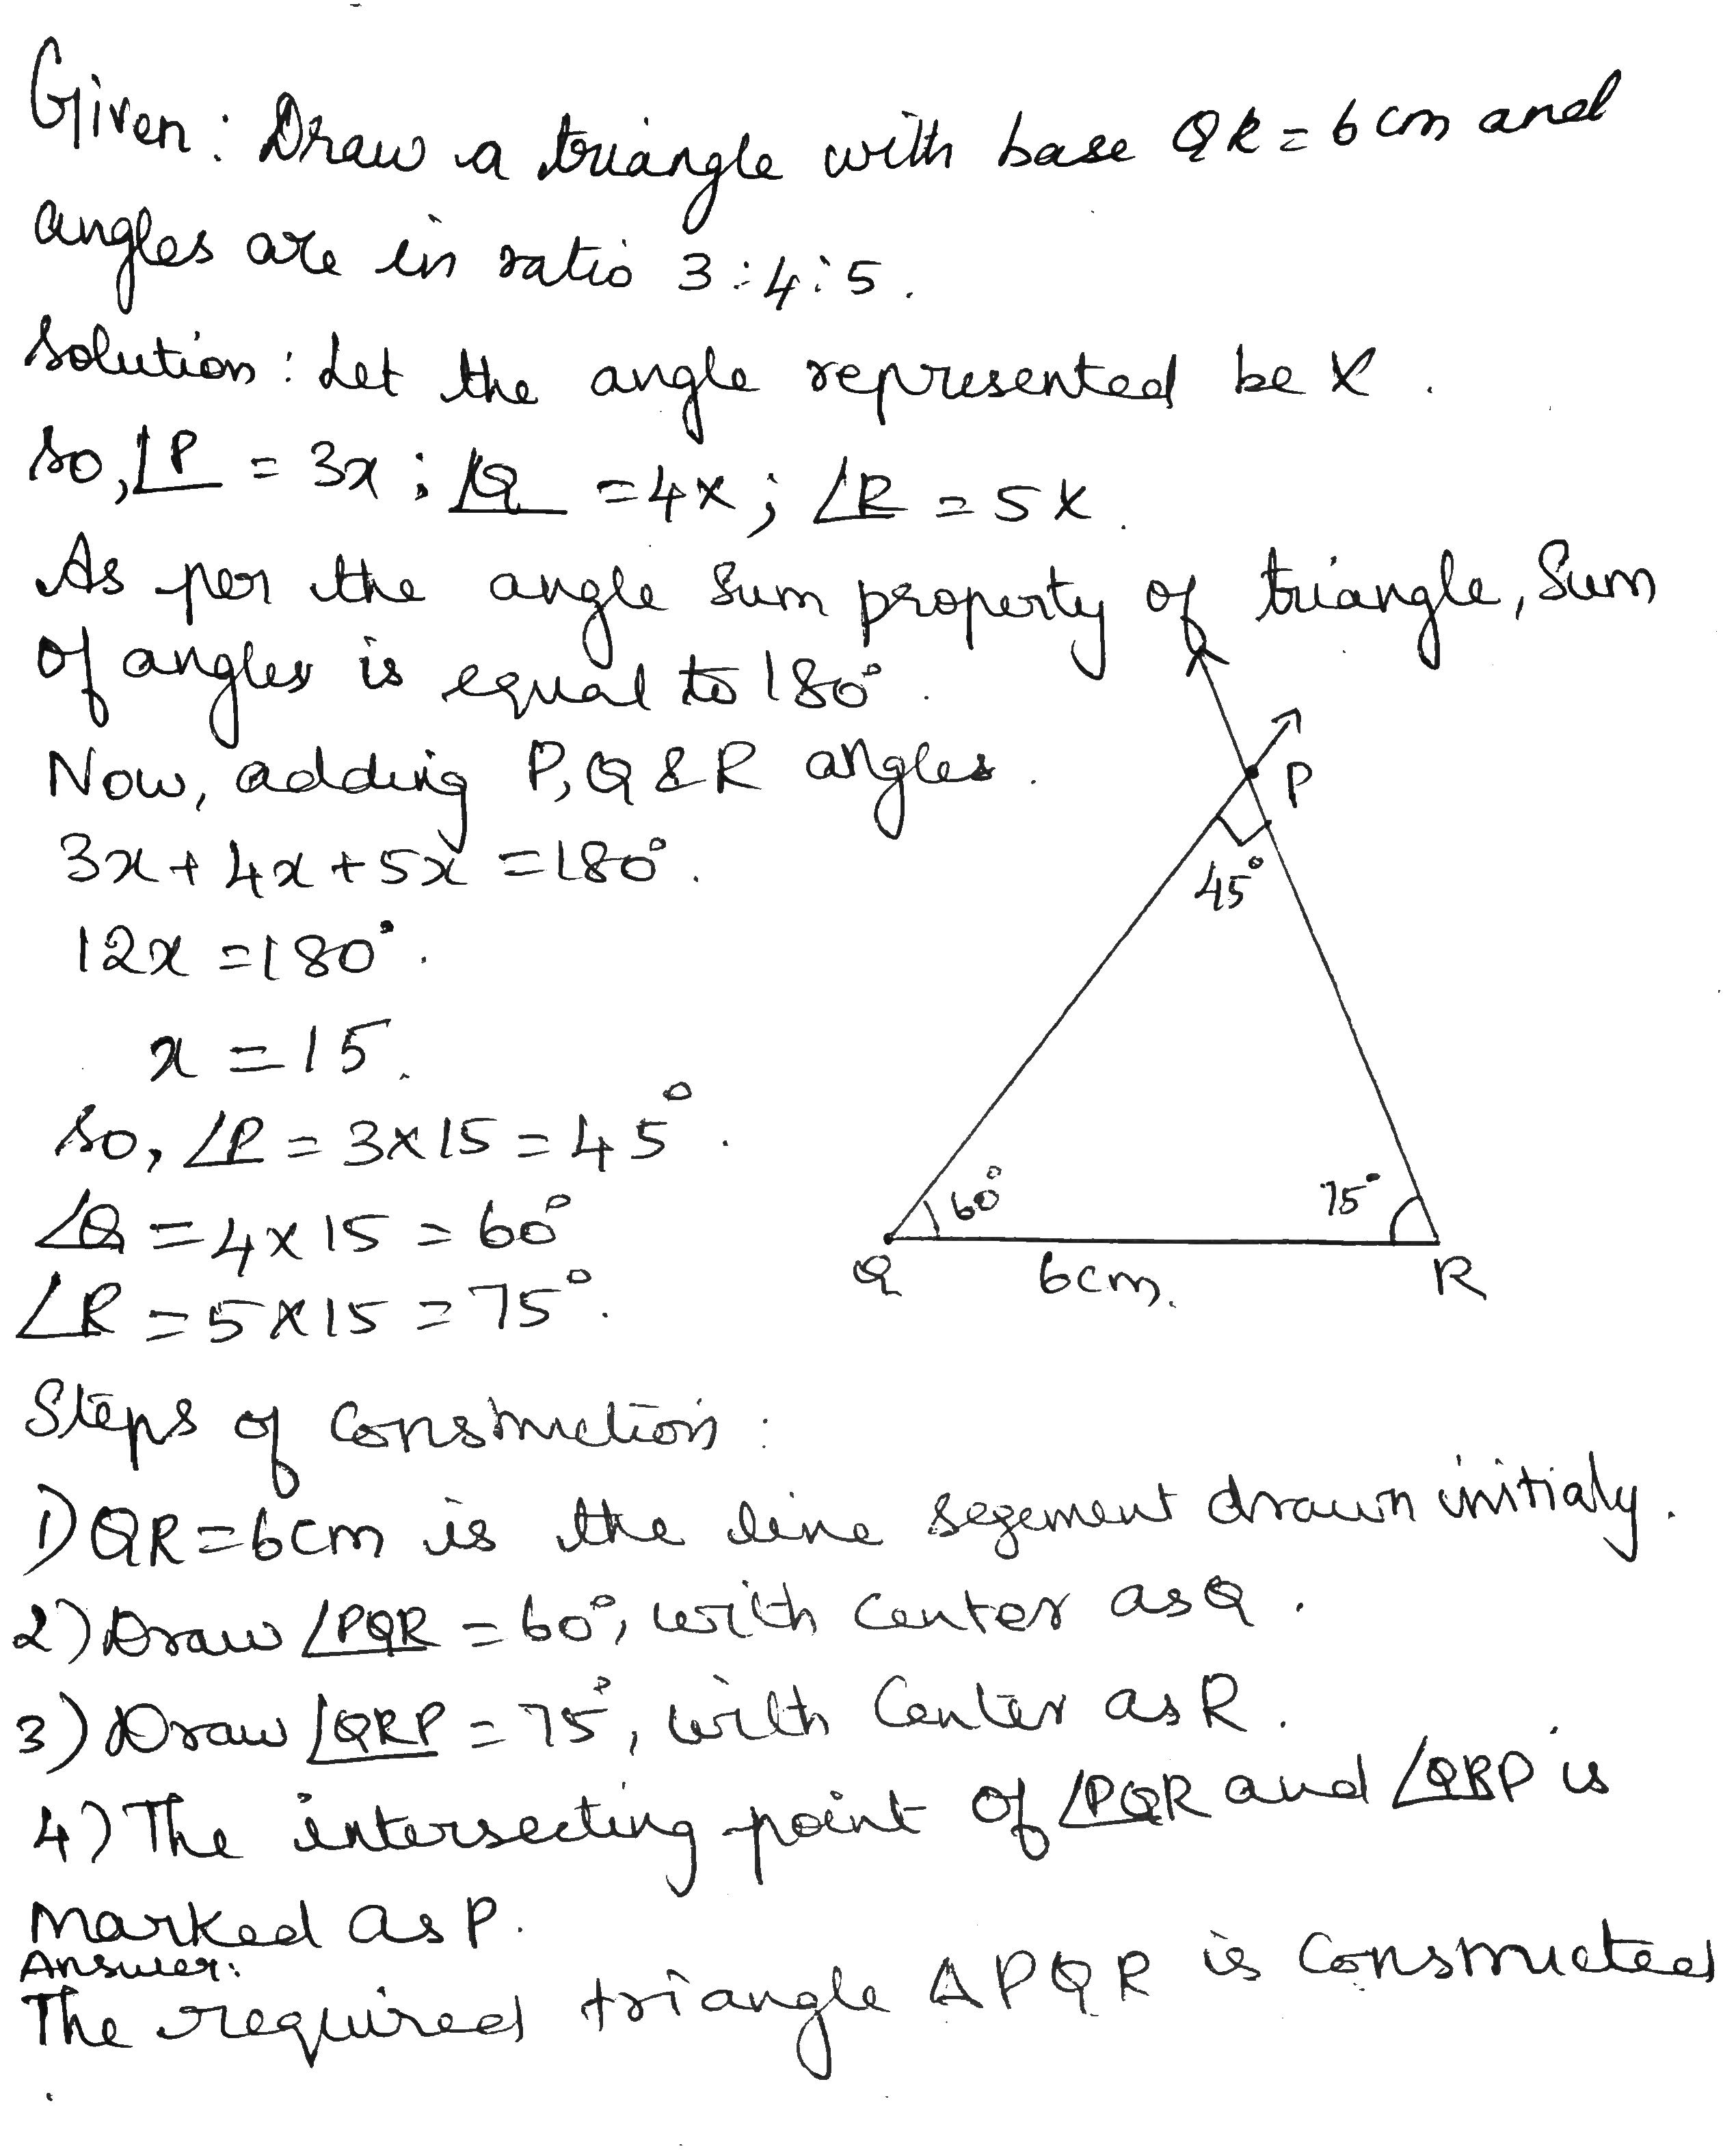 Given: Draw a triangle with base QR = 6cm and
angles are in ratio 3:4:5.
Solution: Let the angle represented be x.
So, ∠P = 3x; ∠Q = 4x; ∠R = 5x.
As per the angle sum property of triangle, Sum
of angles is equal to 180°.
Now, adding P, Q & R angles.
3x + 4x + 5x = 180°.
12x = 180°.
x = 15.
So, ∠P = 3×15 = 45°.
∠Q = 4×15 = 60°
∠R = 5×15 = 75°.
P
45°
60°
75°
Q
6cm.
R
Steps of Construction:
1) QR = 6cm is the line segement drawn initialy.
2) Draw ∠PQR = 60°, with center as Q.
3) Draw ∠QRP = 75°, with Center as R.
4) The intersecting point of ∠PQR and ∠QRP is
Marked as P.
Answer:
The required triangle ΔPQR is Constructed
.